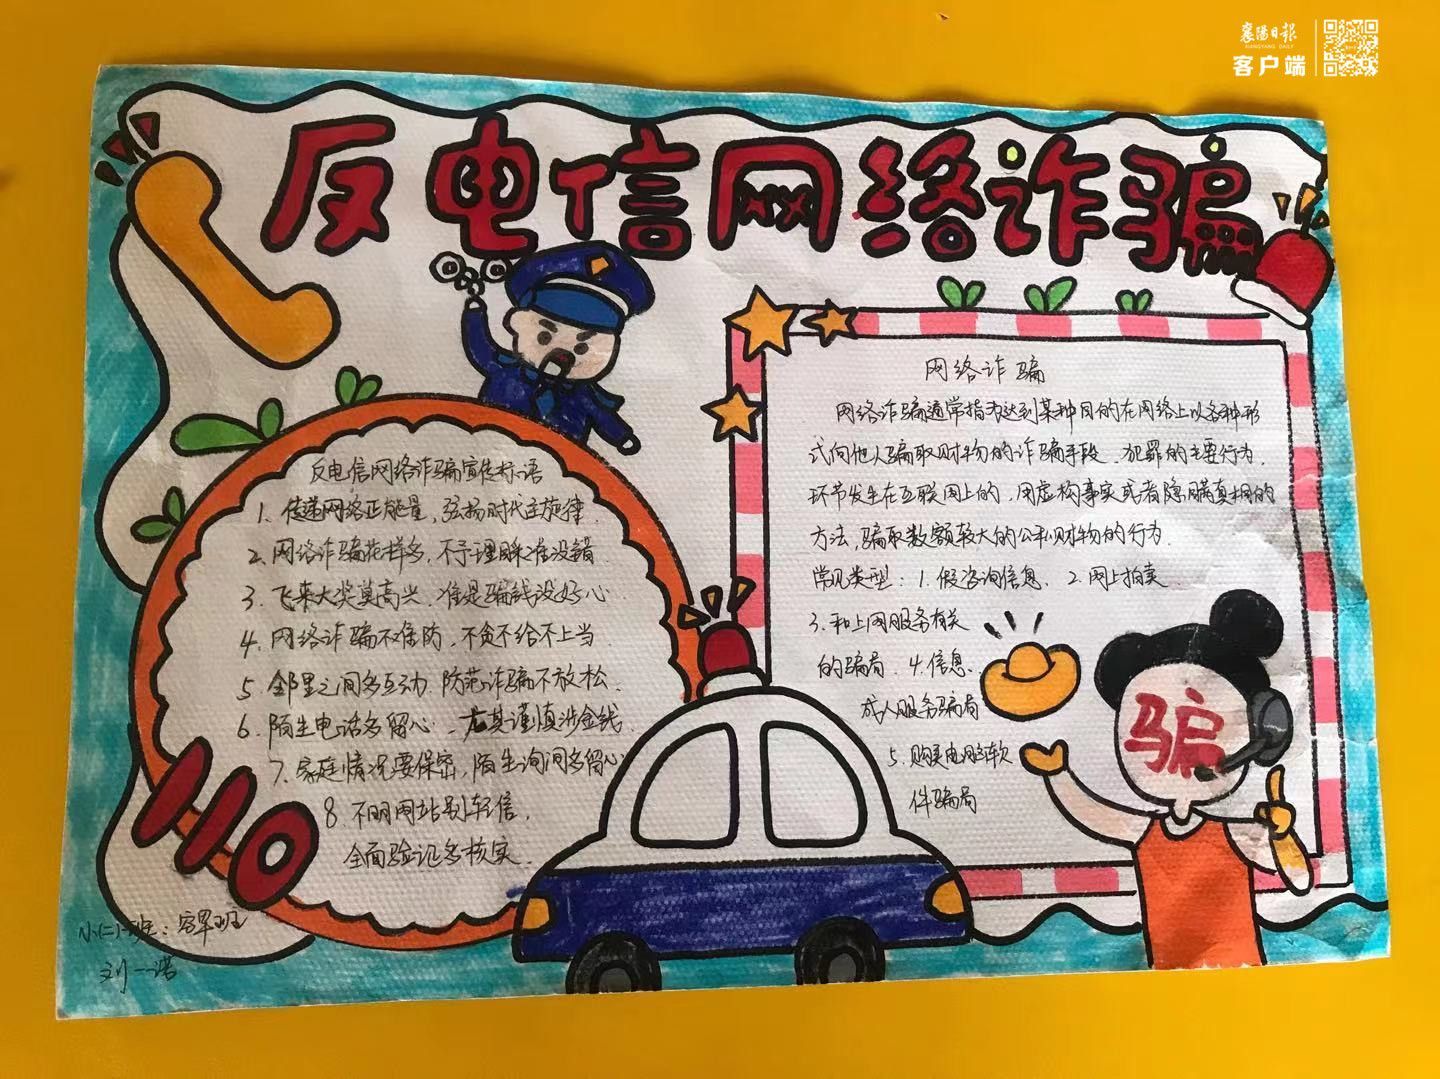 襄阳日报
XIANGYANG DAILY
客户端
反电信网络诈骗
反电信网络诈骗宣传标语
1. 传递网络正能量，弘扬时代主旋律.
2. 网络诈骗花样多，不予理睬准没错
3. 飞来大奖莫高兴，准是骗钱没好心
4. 网络诈骗不难防，不贪不给不上当
5 邻里之间多互动.防范诈骗不放松.
6. 陌生电话多留心，尤其谨慎涉金钱.
7. 家庭情况要保密，陌生询问多留心
8. 不明网站别轻信，
全面验证多核实.
110
小(二)班:
刘一诺
网络诈骗
网络诈骗通常指为达到某种目的在网络上以各种形
式向他人骗取财物的诈骗手段、犯罪的主要行为.
环节发生在互联网上的，用虚构事实或者隐瞒真相的
方法，骗取数额较大的公私财物的行为.
常见类型：1.假咨询信息、2.网上拍卖
3.和上网服务有关
的骗局.4.信息.
成人服务骗局
5.购买电脑软
件骗局
骗